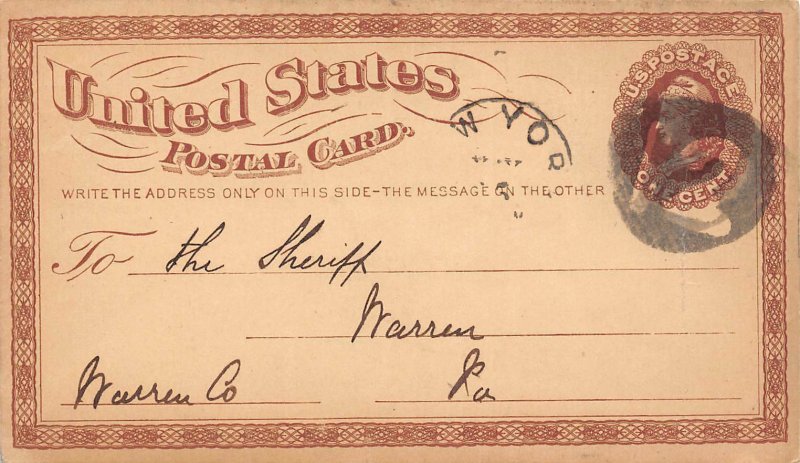 United States
POSTAL CARD.
WRITE THE ADDRESS ONLY ON THIS SIDE-THE MESSAGE ON THE OTHER
U.S. POSTAGE
ONE CENT
W YOR
To the Sheriff
Warren
Warren Co Pa